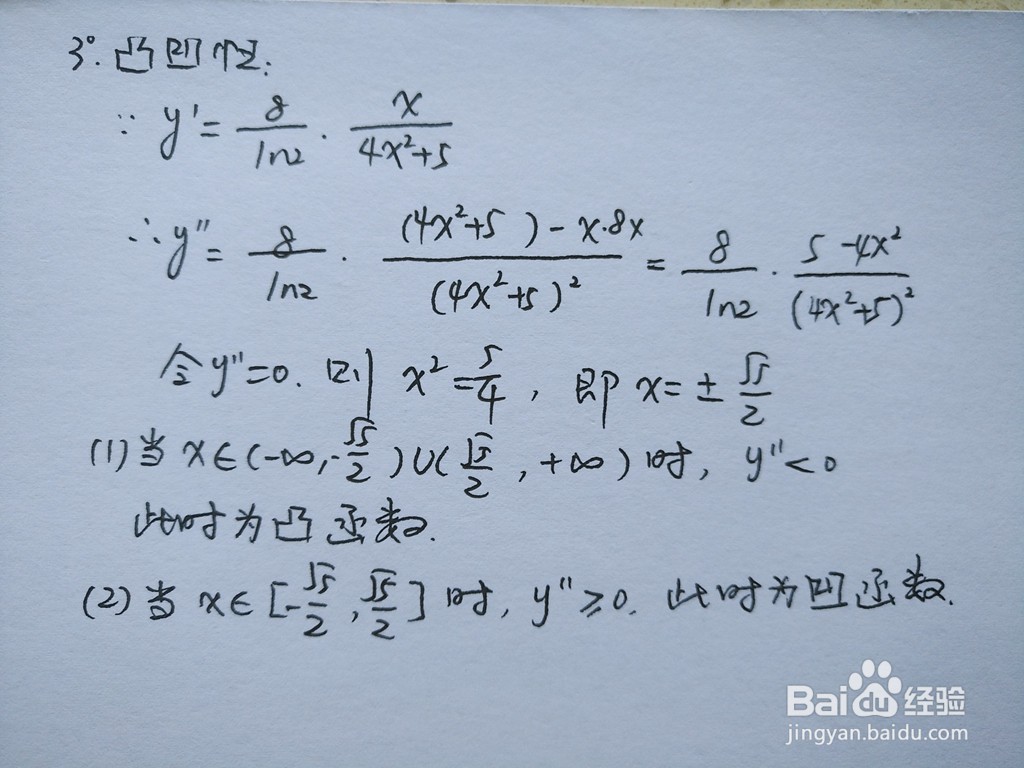 3°. 凸凹性:
∵ y' = 8/ln2 · x/(4x²+5)
∴ y'' = 8/ln2 · ((4x²+5) - x·8x)/(4x²+5)² = 8/ln2 · (5-4x²)/(4x²+5)²
令y''=0. 则 x²=5/4, 即 x=±√5/2
(1)当 x∈(-∞,-√5/2)∪(√5/2,+∞)时, y''<0
此时为凸函数.
(2)当 x∈[-√5/2,√5/2]时, y''≥0. 此时为凹函数.
Baidu经验
jingyan.baidu.com